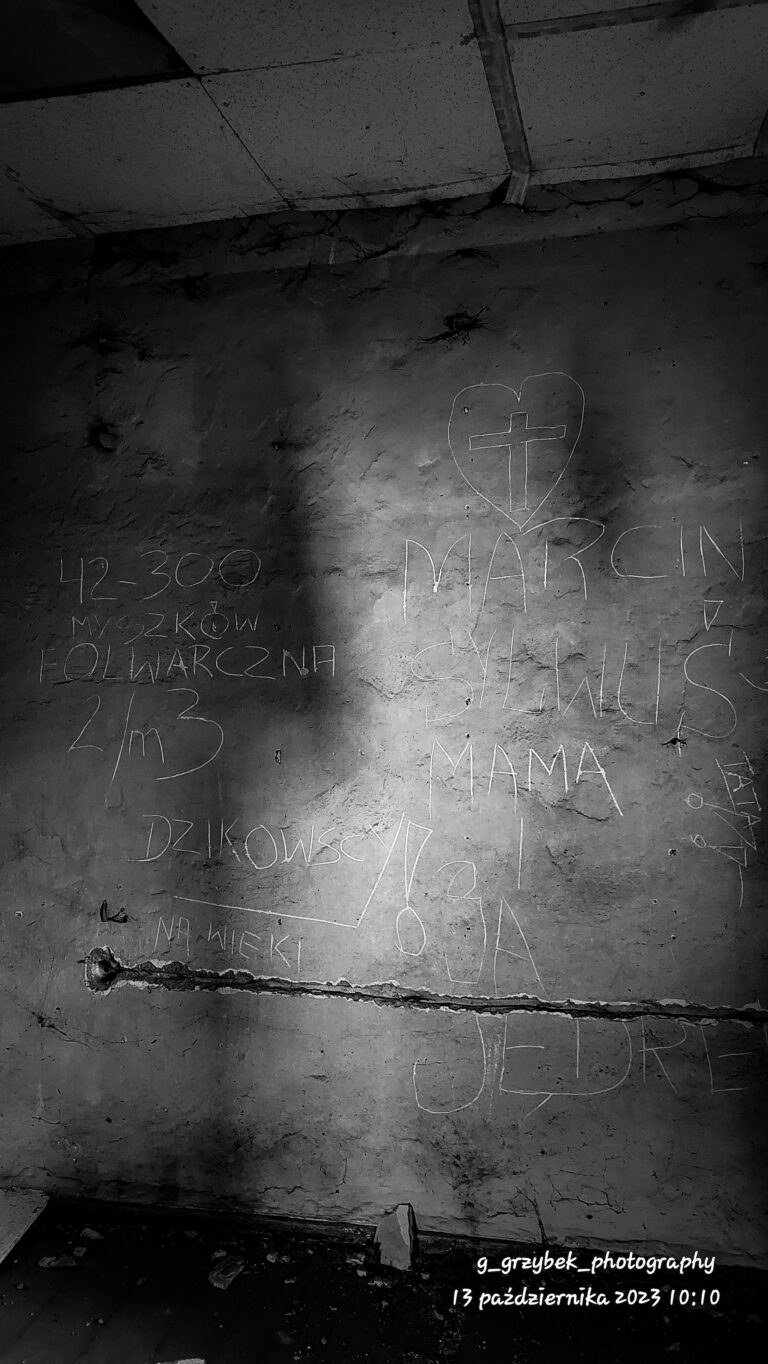 42-300
MYSZKÓW
FOLWARCZNA
2/m3
DZIKOWSCY!
NA WIEKI
MARCIN
SYLWUŚ
MAMA
TATA
I
JA
JĘDRE
g_grzybek_photography
13 października 2023 10:10